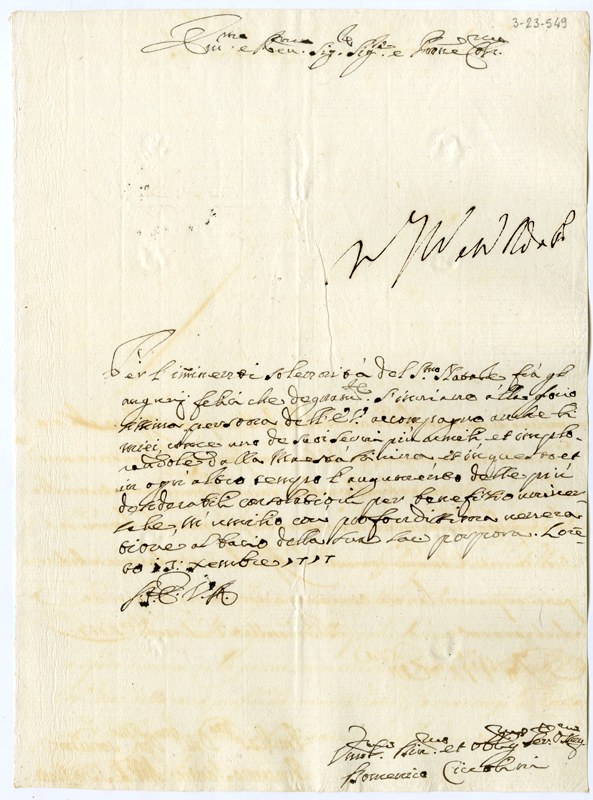 3-23-549
Em.mo e Rev.mo Sig.re Sig.re e Prone Col.mo
Per l'iminenti solennità del S.mo Natale frà gl
augurj felici che degnam.te s'inviano alla
persona dell'E.V. accompagno anche li
miei, come uno de suoi servi più umili, et implo-
randole dalla Maestà Divina et in questo et
in ogn'altro tempo l'augumento delle più
desiderabili consolationi per benefitio univer
sale, m'umilio con profondissima venera
tione al bacio della sua Sac. porpora. Lore-
to Xembre
Di V. E.
Umil.mo Div. et Oblig.mo Ser.
Domenico Ciccolini